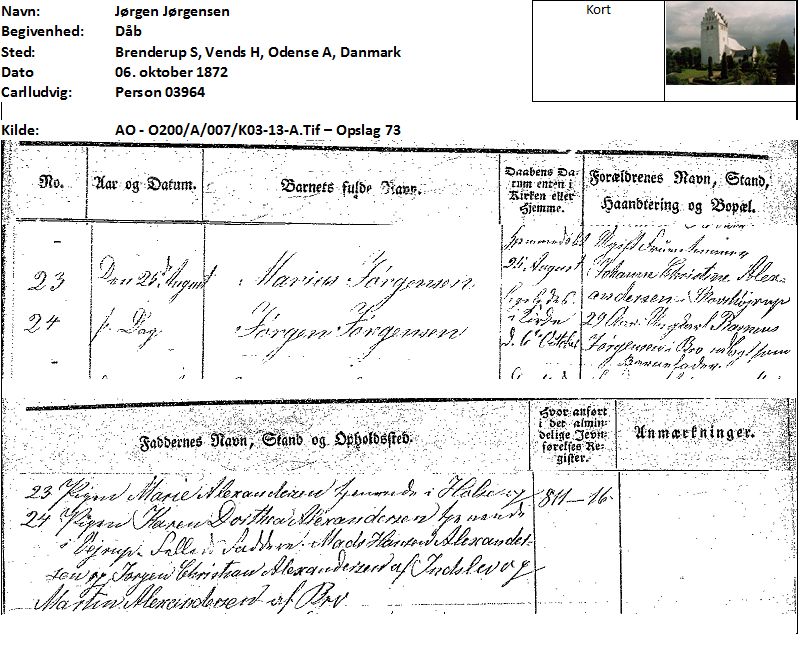 Navn: Jørgen Jørgensen
Begivenhed: Dåb
Sted: Brenderup S, Vends H, Odense A, Danmark
Dato 06. oktober 1872
Carlludvig: Person 03964
Kort
Kilde: AO - O200/A/007/K03-13-A.Tif – Opslag 73
No.
Aar og Datum.
Barnets fulde Navn.
Daabens Da-
tum enten i
Kirken eller
Hjemme.
Forældrenes Navn, Stand,
Haandtering og Bopæl.
23
Den 25 August
Marius Jørgensen
24
s. Dag
Jørgen Jørgensen
hjemmedøbt
25 August
i Kirke
d. 6 October
Ugift
Johanne Christine Alex-
andersen i
29 Aar. Rasmus
Jørgensen i Bro som
Barnefader.
Faddernes Navn, Stand og Opholdssted.
Hvor anført
i det almin-
delige Jevn-
førelses Re-
gister.
Anmærkninger.
23 Pigen Marie Alexandersen tjenende i og
24 Pigen Karen Dorthea Alexandersen tjenende
i Fælles Faddere: Mads Hansen Alexander-
sen og Jørgen Christian Alexandersen af Indslev og
Martin Alexandersen af Bro
811–16